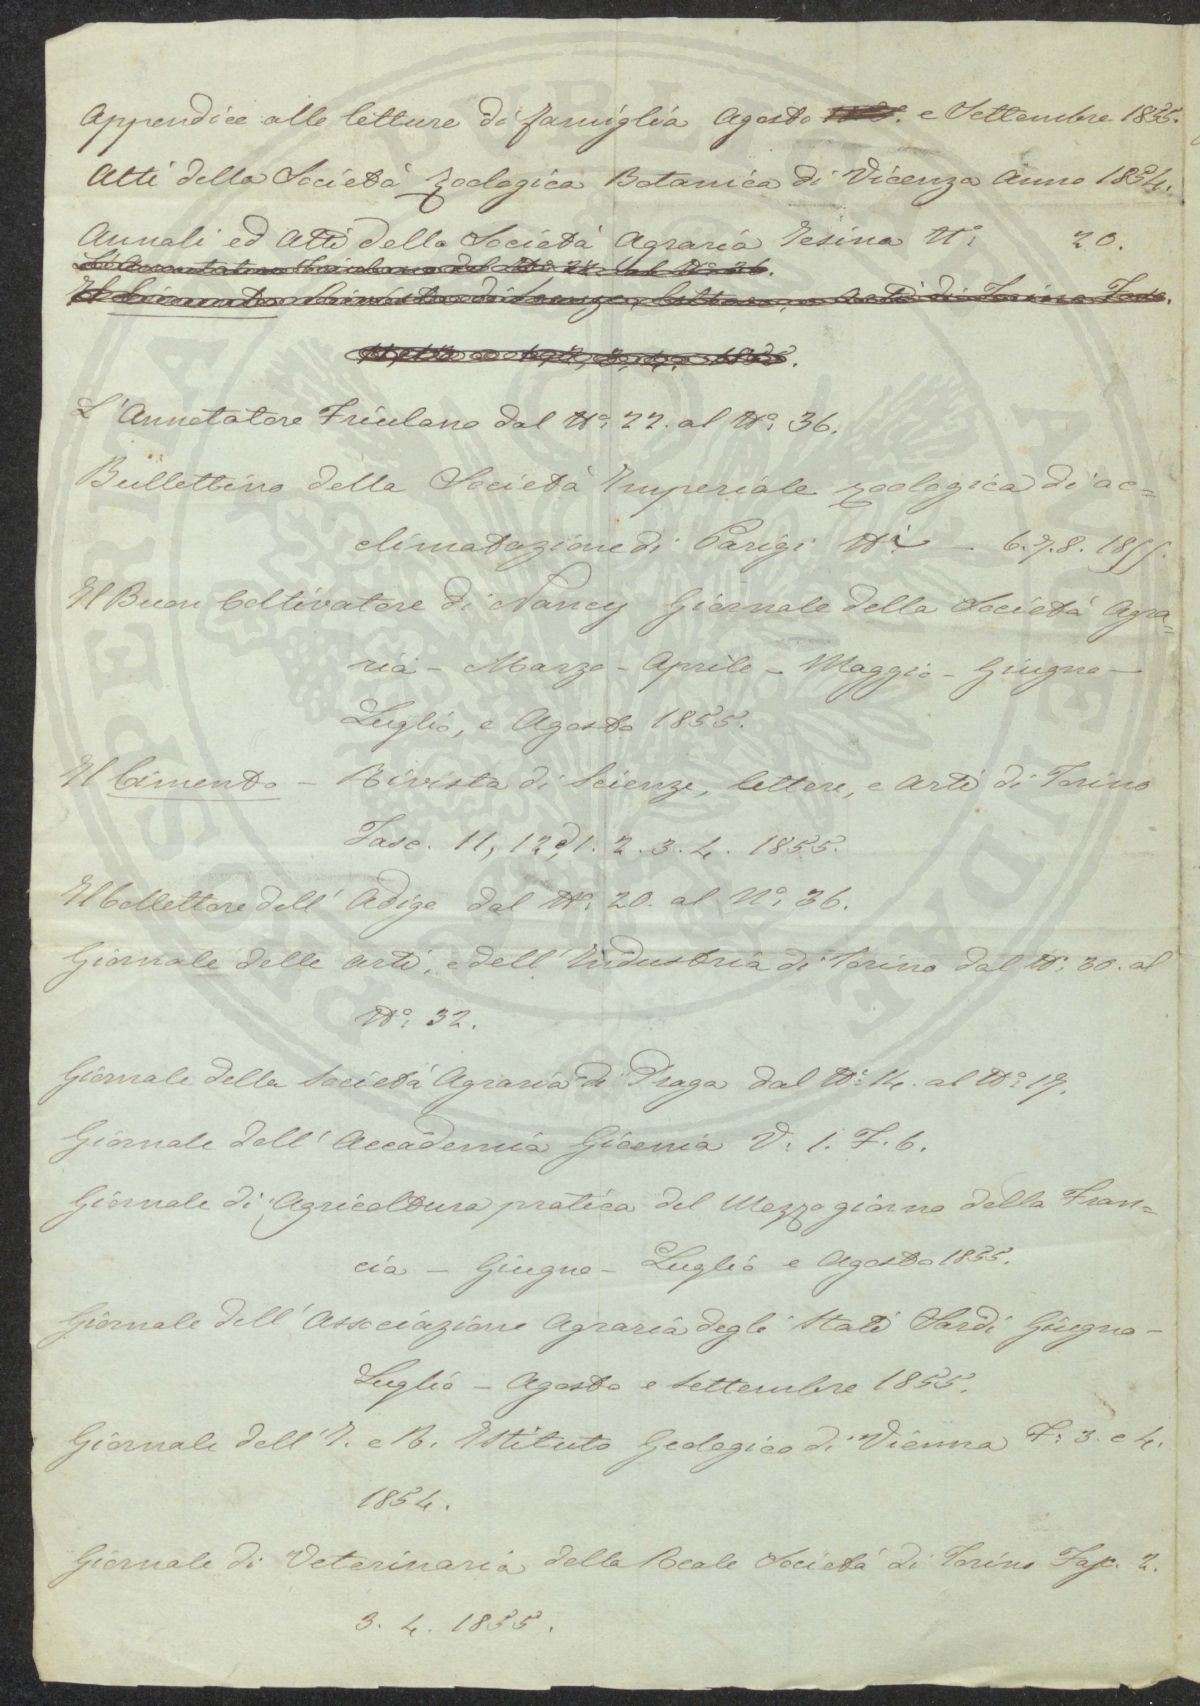 Appendice alle letture di famiglia Agosto e Settembre 1855.
Atti della Società Zoologica Botanica di Vicenza Anno 1854.
Annali ed Atti della Società Agraria Jesina N.° 20.
L'Annotatore Friulano dal N.° 22 al N.° 36.
Il Cimento Rivista di Scienze, lettere, e Arti di Torino Fasc.
11, 12 e 1, 2, 3, 4. 1855.
L'Annotatore Friulano dal N.° 22. al N.° 36.
Bullettino della Società Imperiale zoologica di ac=
climatazione di Parigi N.i — 6. 7. 8. 1855.
Il Buon Coltivatore di Nancy Giornale della Società Agra=
ria — Marzo — Aprile — Maggio — Giugno —
Luglio, e Agosto 1855.
Il Cimento — Rivista di Scienze, lettere, e Arti di Torino
Fasc. 11, 12 e 1. 2. 3. 4. 1855.
Il Collettore dell'Adige dal N.° 20. al N.° 36.
Giornale delle Arti, e dell'Industria di Torino dal N.° 30. al
N.° 32.
Giornale della Società Agraria di Praga dal N.° 14. al N.° 19.
Giornale dell'Accademia Gioenia V. 1. F. 6.
Giornale di Agricoltura pratica del Mezzogiorno della Fran=
cia — Giugno — Luglio e Agosto 1855.
Giornale dell'Associazione Agraria degli Stati Sardi Giugno —
Luglio — Agosto e Settembre 1855.
Giornale dell'I. e R. Istituto Geologico di Vienna F. 3. e 4.
1854.
Giornale di Veterinaria della Reale Società di Torino Fasc. 2.
3. 4. 1855.
PROSPERITAS PUBLICA AUGENDAE